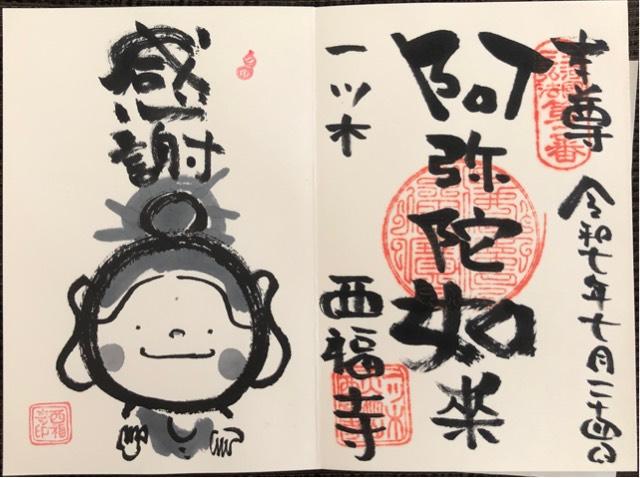 本尊
令和七年七月二十四日
阿弥陀如来
一ツ木
西福寺
感謝